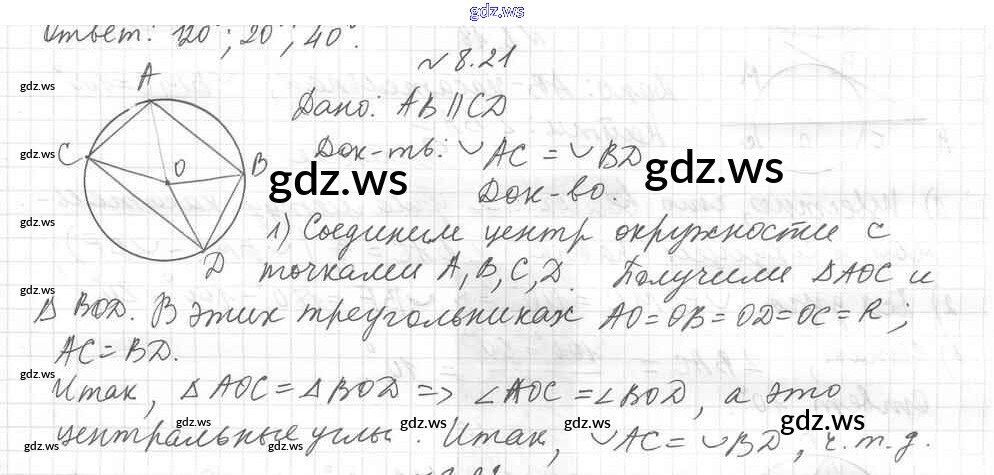 gdz.ws
Ответ: 120°; 20°; 40°.
№ 8.21
A
gdz.ws
Дано: AB || CD
gdz.ws
C
O
B
Док-ть: ◡ AC = ◡ BD
gdz.ws
gdz.ws
Док-во.
gdz.ws
D
1) Соединим центр окружности с
точками A, B, C, D. Получим Δ AOC и
gdz.ws
Δ BOD. В этих треугольниках AO = OB = OD = OC = R;
AC = BD.
gdz.ws
Итак, Δ AOC = Δ BOD => ∠AOC = ∠BOD, а это
gdz.ws gdz.ws gdz.ws gdz.ws gdz.ws
центральные углы. Итак, ◡ AC = ◡ BD, ч.т.д.